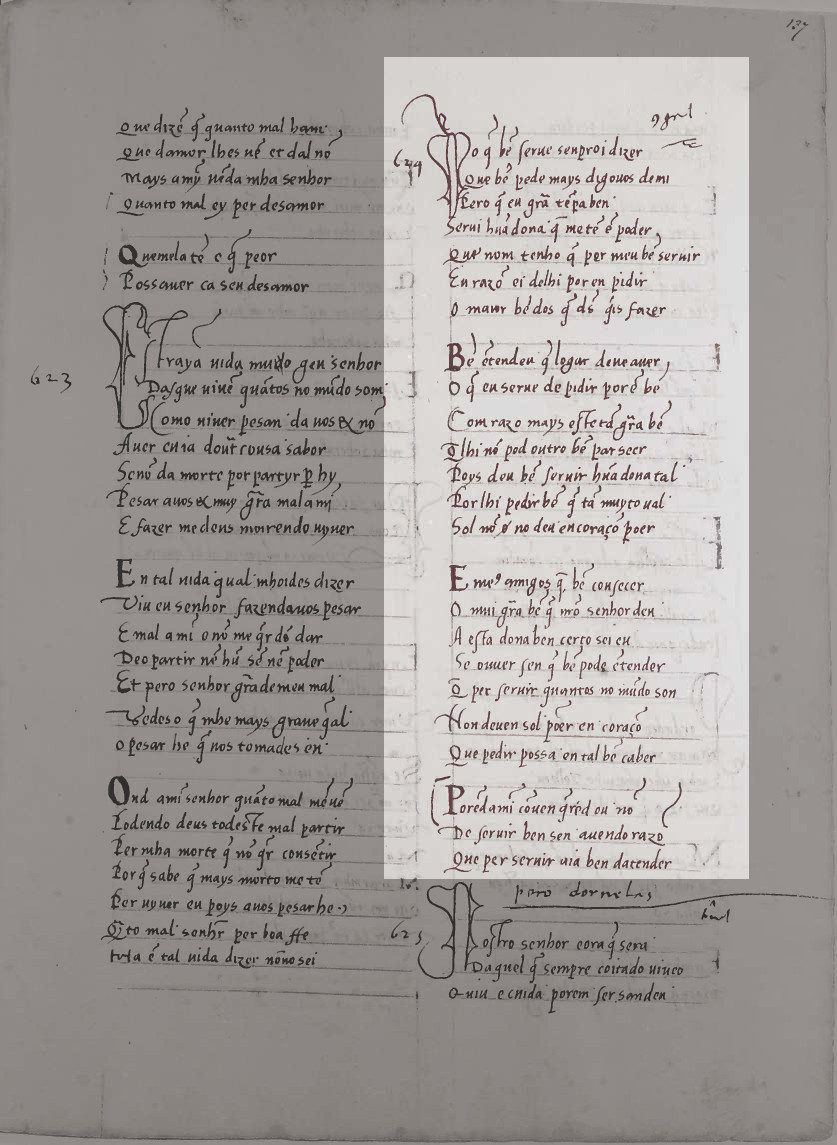 137
Que dizē q̄ quanto mal ham
Que damor lhes uē et dal nō
Mays amȳ uēda mha senhor
Quanto mal ey per desamor
Quemela tē e q̄ peor
Possauer ca seu desamor
623
Estraya uida muido geu senhor
Dasque uiuē quātos no mūdo som
Como uiuer pesan da uos & nō
Auer cuia doutͬ cousa sabor
Senō da morte por partyr ꝑ hy
Pesar auos & muy gͬra mal a mī
E fazer me deus morrendo uyuer
En tal uida qual mhoides dizer
Viu eu senhor fazendauos pesar
E mal a mī o nō me qͬr d͞s dar
Deo partir nē hū sē nē poder
Et pero senhor gͬrademeu mal
Uedes o q̄ mhe mays graue q̄al
o pesar he q̄ uos tomades en
Ond ami senhor quāto mal me uē
Podendo deus todeste mal partir
Per mha morte q̄ nō qͬr consētir
Por q̄ sabe q̄ mays morto me tē
Per uyuer eu poys auos pesar he
Qͣto mal senhͬr per boa ffe
tuta ē tal uida dizer nō no sei
624
Po q̄ bē serue senproi dizer
Que bē pede mays digouos demi
Pero q̄ eu gͬrā tēpa ben
Serui hūa dona q̄ me tē ē poder
Que nom tenho q̄ per meu bē seruir
Eu razō ei delhi por en pidir
O maior bē dos q̄ d͞s q̄is fazer
Bē ētendeu q̄ logar deue auer
O q̄ eu serue de pidir por ē bē
Com razo mays esteta gͬrā bē
Q̄lhi nō pod outro bē par seer
Poys deu bē seruir hūa dona tal
Por lhi pedir bē q̄ tā muyto ual
Sol nō ø no deu en coraço poer
E me9 amigos q̄ bē consecer
O mui gͬrā bē q̄ nr̄o senhor deu
A esta dona ben certo sei eu
Se ouuer sen q̄ bē pode ētender
Q̄ per seruir quantos no mūdo son
Non deuen sol poēr en coraço
Que pedir possa en tal bē caber
Porēd amī cōuen qͬred ou nō
De seruir ben sen auendo razo
Que per seruir aia ben datender
pero dornelas
625
Nostro senhor eora q̄ sera
Daquel q̄ sempre coitado uiuco
Q uiu e cuida porem ser sandeu